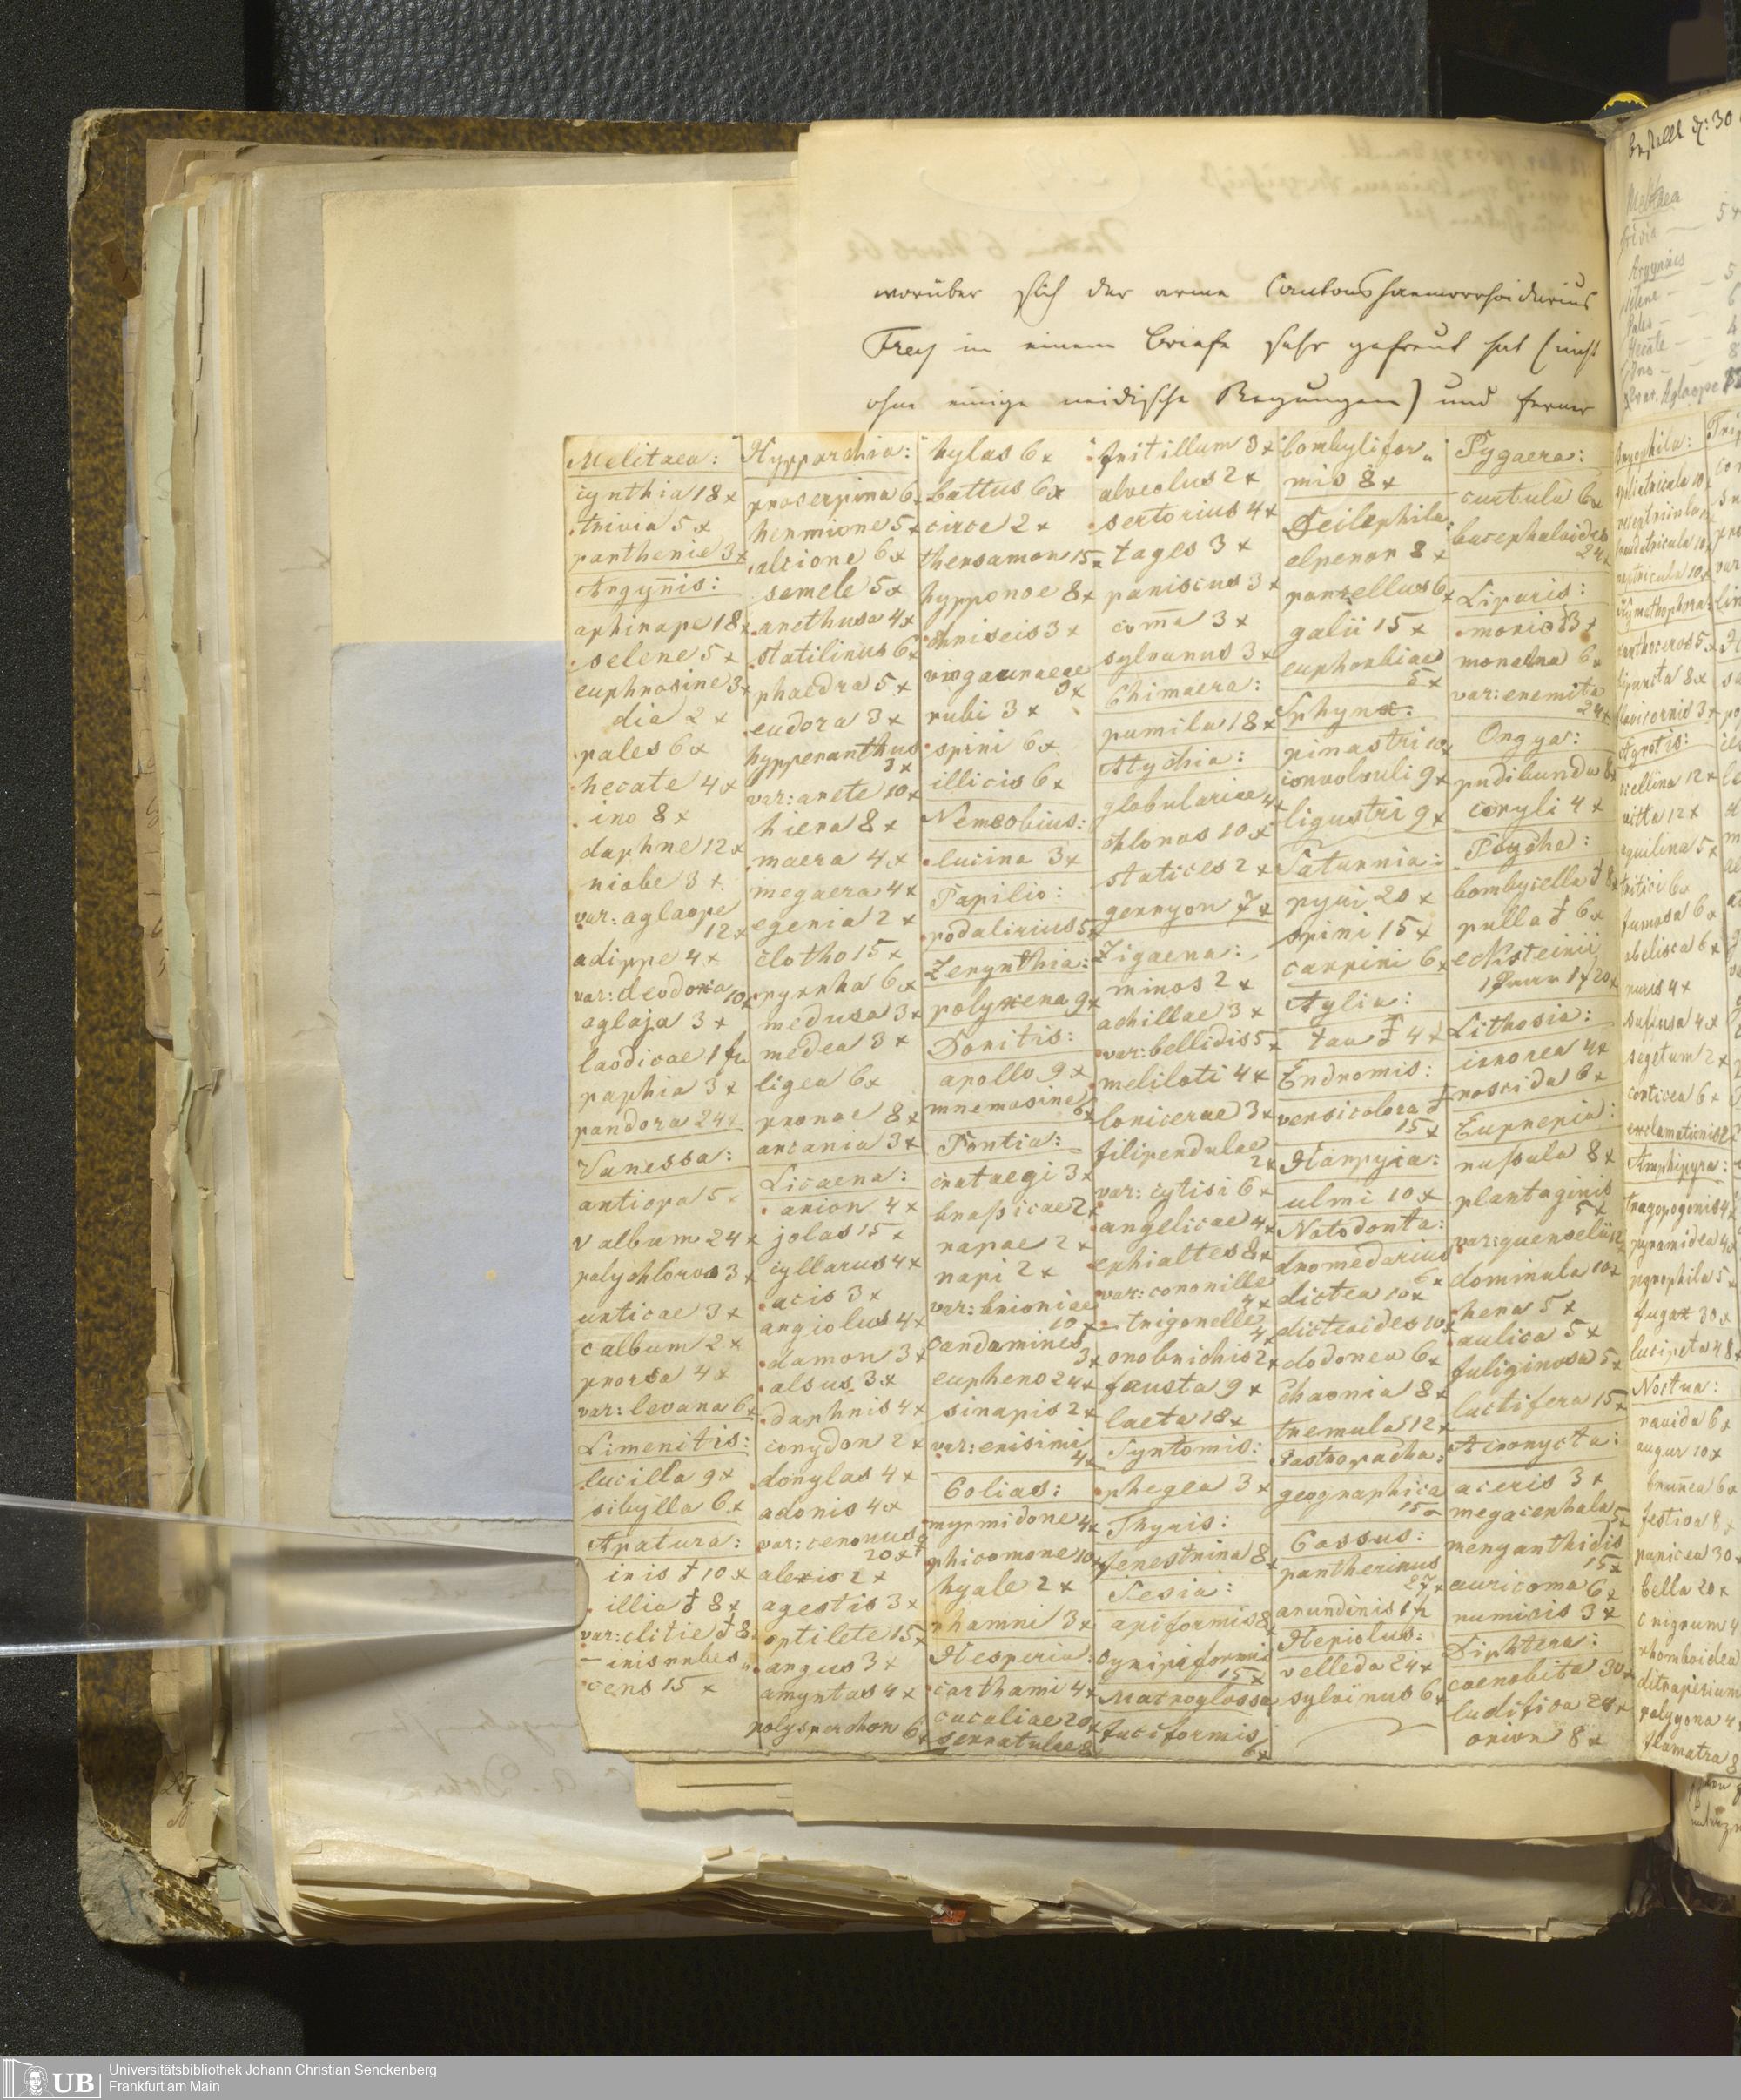 worüber sich der arme Cantonshaemorrhoidarius
Frey in einem Briefe sehr gefreut hat (nicht
ohne einige neidische Regungen) und ferner
Melitaea:
cynthia 18 x
trivia 5 x
parthenie 3 x
Argynnis:
aphirape 18 x
selene 5 x
euphrosine 3 x
dia 2 x
pales 6 x
hecate 4 x
ino 8 x
daphne 12 x
niobe 3 x
var: aglaope
12 x
adippe 4 x
var: cleodoxa 10 x
aglaja 3 x
laodicae 1 f
paphia 3 x
pandora 24 x
Vanessa:
antiopa 5 x
V album 24 x
polychloros 3 x
urticae 3 x
C album 2 x
prorsa 4 x
var: levana 6 x
Limenitis:
lucilla 9 x
sibylla 6 x
Apatura:
iris ♂ 10 x
illia ♂ 8 x
var: clitie ♂ 8
— iris rubes„
cens 15 x
Hypparchia:
proserpina 6
hermione 5 x
alcione 6 x
semele 5 x
arethusa 4 x
statilinus 6 x
phaedra 5 x
eudora 3 x
hypperanthus
3 x
var: arete 10 x
hiera 8 x
maera 4 x
megaera 4 x
egeria 2 x
clotho 15 x
pyrrha 6 x
medusa 3 x
medea 3 x
ligea 6 x
pronoe 8 x
arcania 3 x
Licaena:
arion 4 x
jolas 15 x
cyllarus 4 x
acis 3 x
argiolus 4 x
damon 3 x
alsus 3 x
daphnis 4 x
corydon 2 x
dorylas 4 x
adonis 4 x
var: ceronus
20 x
alexis 2 x
agestis 3 x
optilete 15 x
argus 3 x
amyntas 4 x
polysperchon 6 x
hylas 6 x
battus 6 x
circe 2 x
thersamon 15 x
hypponoe 8 x
chriseis 3 x
virgaureae
3 x
rubi 3 x
spini 6 x
illicis 6 x
Nemeobius:
lucina 3 x
Papilio:
podalirius 5 x
Zerynthia:
polyxena 9 x
Doritis:
apollo 9 x
mnemosine 6 x
Pontia:
crataegi 3 x
braßicae 2 x
rapae 2 x
napi 2 x
var: brioniae
10 x
Cardamines
3 x
eupheno 24 x
sinapis 2 x
var: erisimi
4 x
Colias:
myrmidone 4 x
phicomone 10 x
hyale 2 x
rhamni 3 x
Hesperia:
carthami 4 x
cacaliae 20 x
serratulae 8
fritillum 3 x
alveolus 2 x
sertorius 4 x
tages 3 x
paniscus 3 x
com̅a 3 x
sylvanus 3 x
Chimaera:
pumila 18 x
Atychia:
globulariae 4 x
chloros 10 x
statices 2 x
gerryon 7 x
Zigaena:
minos 2 x
achillae 3 x
var: bellidis 5 x
meliloti 4 x
lonicerae 3 x
filipendulae
2 x
var: cytisi 6 x
angelicae 4 x
ephialtes 8 x
var: coronille
4 x
— trigonelle
4 x
onobrichis 2 x
fausta 9 x
laeta 18 x
Syntomis:
phegea 3 x
Thyris:
fenestrina 8 x
Sesia:
apiformis 8 x
cynipiformis
15 x
Macroglossa
fuciformis
6 x
bombylifor„
mis 8 x
Deilephila:
elpenor 8 x
porcellus 6 x
galii 15 x
euphorbiae
5 x
Sphynx:
pinastri 10 x
convolvuli 9 x
ligustri 9 x
Saturnia:
pyri 20 x
spini 15 x
carpini 6 x
Aglia:
tau ♂ 4 x
Endromis:
versicolora ♂
15 x
Harpyia:
ulmi 10 x
Notodonta:
dromedarius
6 x
dictea 10 x
dicteoides 10 x
dodonea 6 x
chaonia 8 x
tremula 12 x
Gastropacha:
geographica
15 x
Cossus:
pantherinus
27 x
arundinis 1 f
Hepiolus:
velleda 24 x
sylvinus 6 x
Pygaera:
curtula 6 x
bucephaloides
24 x
Liparis:
morio ♂ 3 x
monacha 6 x
var: eremita
24 x
Orgya:
pudibunda 8 x
coryli 4 x
Psyche:
bombycella ♂ 8 x
pulla ♂ 6 x
ecksteinii
1 Paar 1 f 20 x
Lithosia:
irrorea 4 x
roscida 6 x
Euprepia:
rußula 8 x
plantaginis
5 x
var: quenselii 12
dominula 10 x
hera 5 x
aulica 5 x
fuliginosa 5 x
luctifera 15 x
Acronycta:
aceris 3 x
megacephala 5 x
menyanthidis
15 x
auricoma 6 x
rumicis 3 x
Diphtera:
coenobita 30 x
ludifica 24 x
orion 8 x
Melitaea
Trivia — 5 x
Argynnis
Selene — 5
Pales — 6
Hecate — 4
Ino — 8
var. Aglaope 12
Bryophila:
Cymathophora:
bipuncta 8 x
flavicornis 3 x
Agrotis:
vitta 12 x
aquilina 5 x
tritici 6 x
fumosa 6 x
obelisca 6 x
puris 4 x
suffusa 4 x
segetum 2 x
corticea 6 x
exclamationis 2
Amphipyra:
tragopogonis 4 x
pyramidea 4 x
pyrophila 5 x
fugax 30 x
lucipeta 48 x
Noctua:
ravida 6 x
augur 10 x
brunnea 6 x
festiva 8 x
punicea 30 x
bella 20 x
C nigrum 4
rhomboidea
ditrapezium
polygona 4
flamatra 8
UB
Universitätsbibliothek Johann Christian Senckenberg
Frankfurt am Main